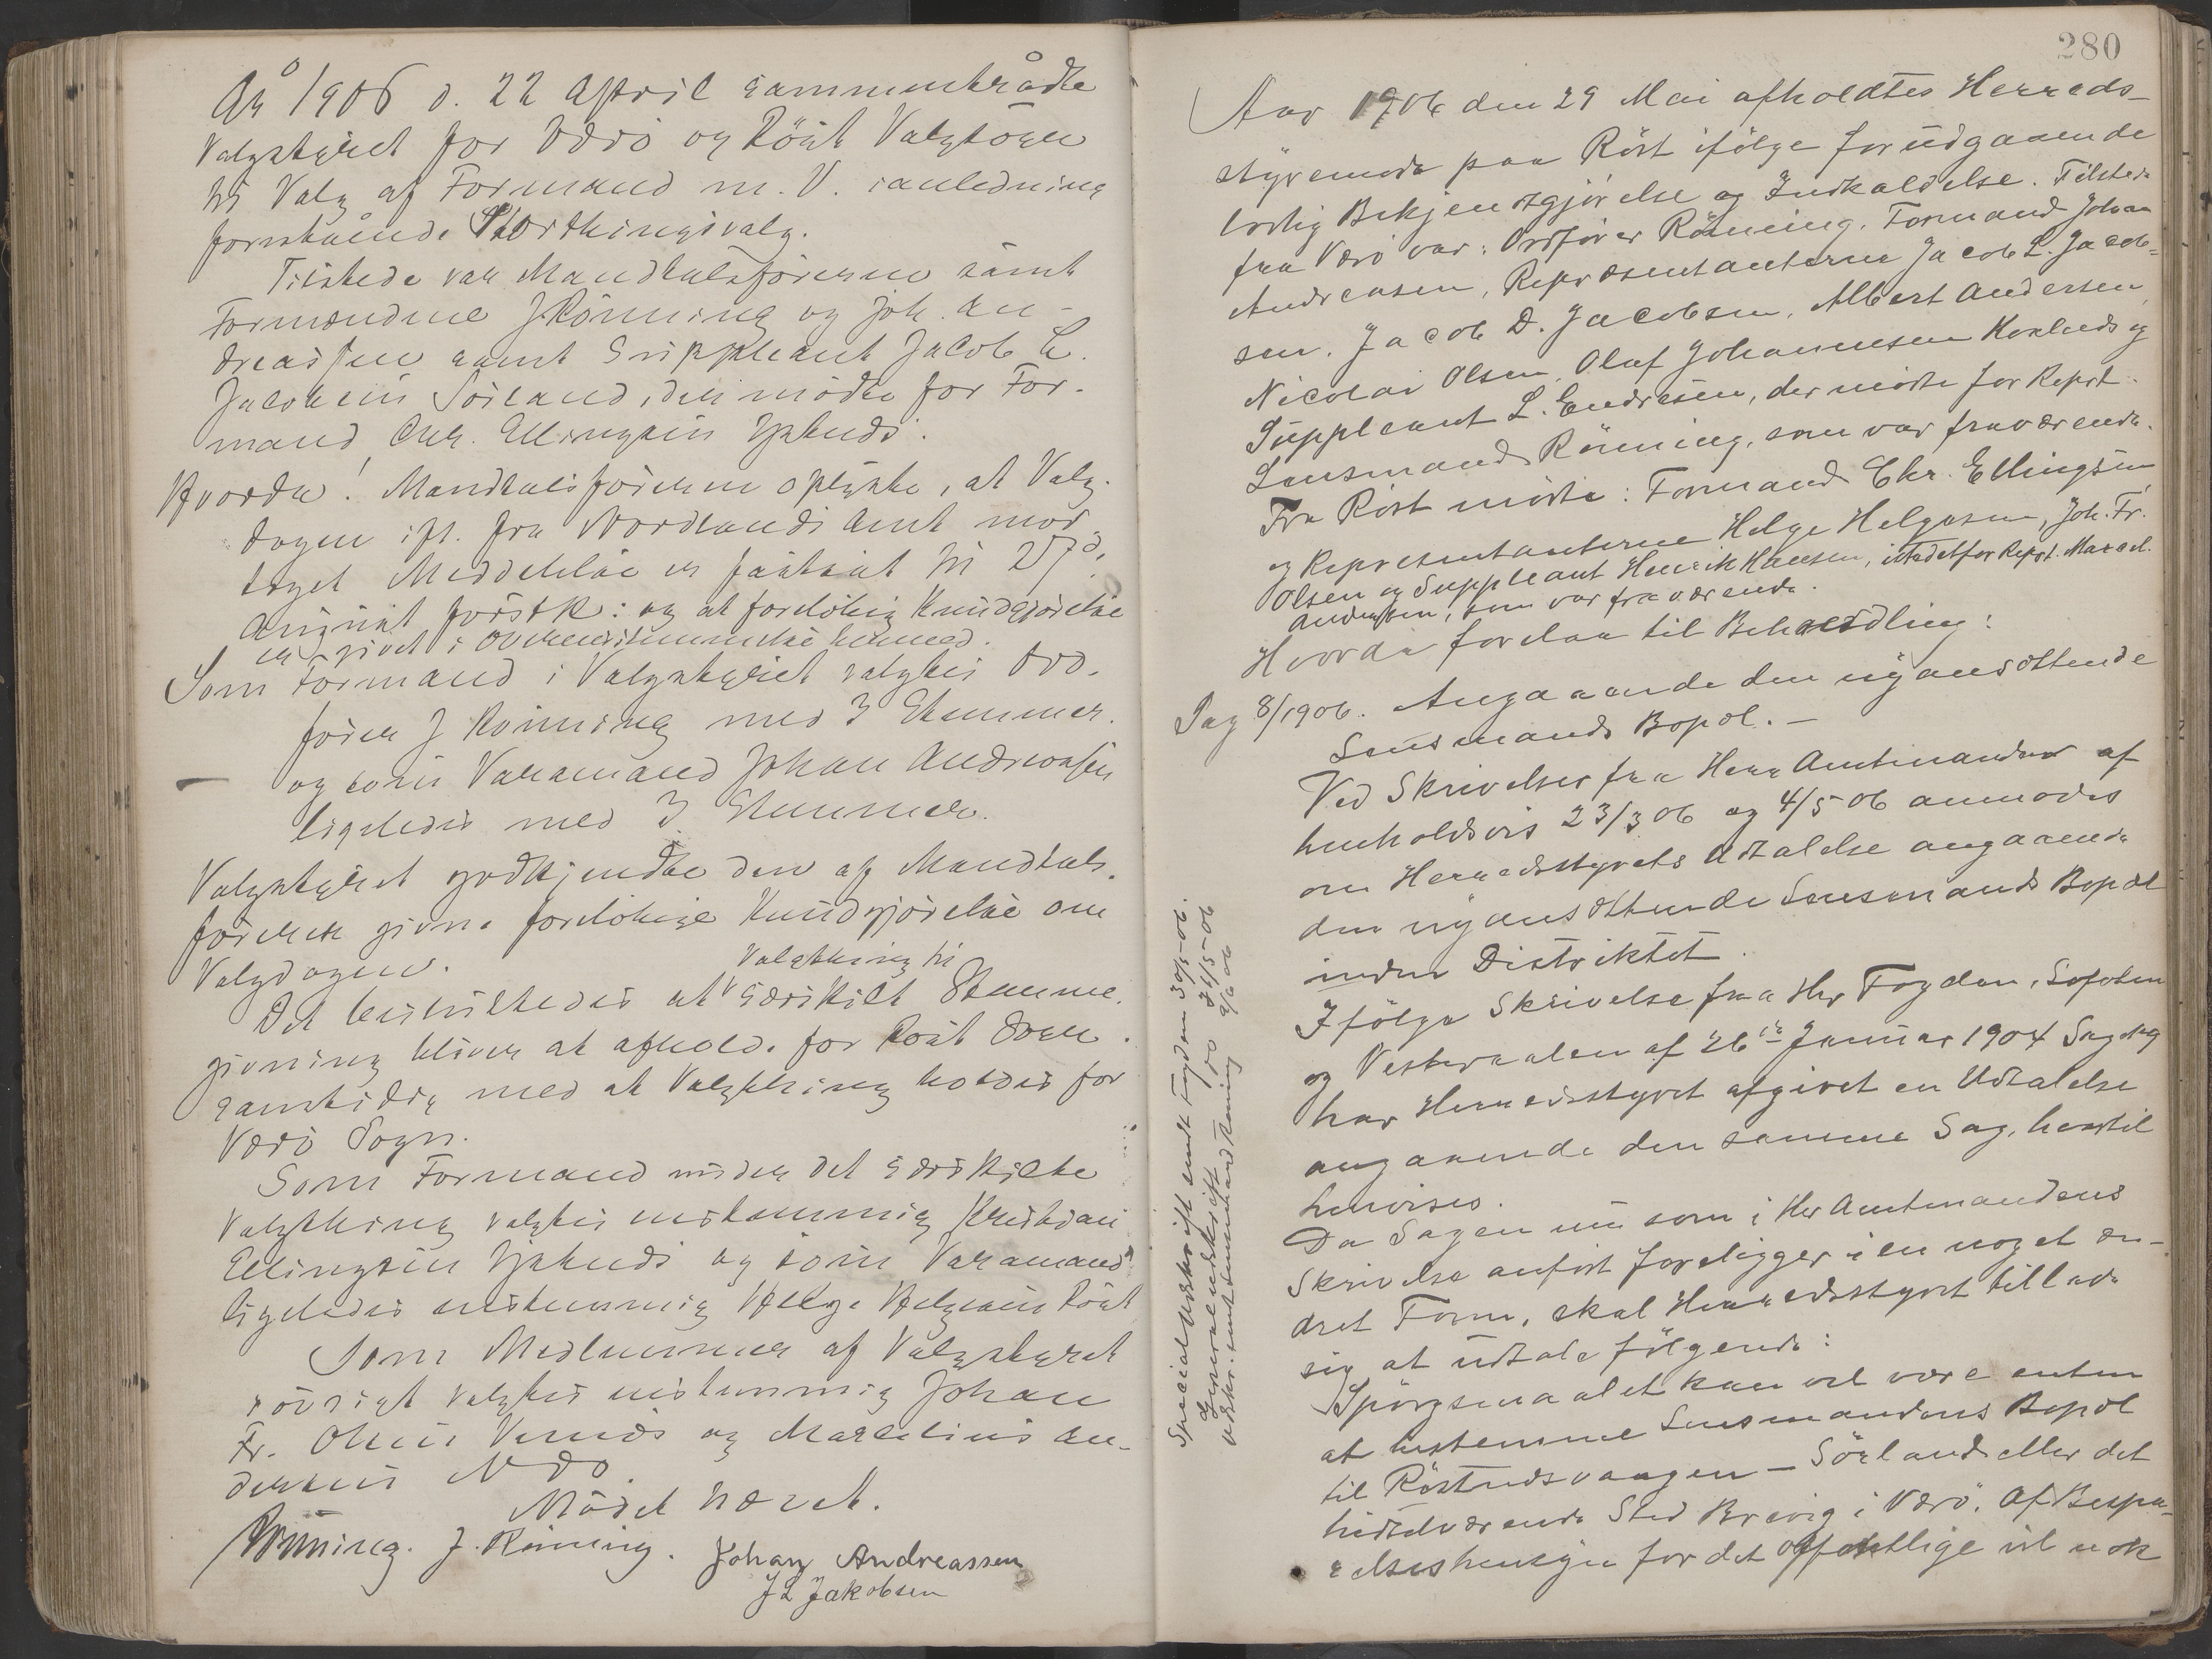 År 1906 d. 22 April sammentrådte
Valgstyret for Værö og Röst Valgsogn
til Valg af Formand m. V. i anledning
forestående Storthingsvalg.
Tilstede var Mandtalsföreren samt
Formændene J Rönning og Joh. An-
dreassen samt Suppleant Jacob L.
Jacobsen Sörland, der mödte for For-
mand Chr. Ellingsen Ystnes.
Hvorda! Mandtalsföreren oplyste, at Valg-
dagen ifl. fra Nordlands Amt mod-
taget Meddelelse er fastsat til 27de
August förstk: og at forelöbig Kundgjörelse
er givet i Overensstemmelse hermed.
Som Formand i Valgstyret valgtes Ord-
förer J Rönning med 3 Stemmer.
og som Varamand Johan Andreassen
ligeledes med 3 Stemmer.
Valgstyret godkjendte den af Mandtals-
föreren givne forelöbige Kundgjörelse om
Valgdagen.
Valgthing til
Det besluttedes at særskilt Stemme-
givning bliver at afholde for Röst Sogn
samtidig med at Valgthing holdes for
Værö Sogn.
Som Formand under det særskilte
Valgthing valgtes enstemmig Kristian
Ellingsen Ystnes og som Varamand
ligeledes enstemmig Helge Helgesen Röst
Som Medlemmer af Valgstyret
iövrigt valgtes enstemmig Johan
Fr. Olsen og Marcelius An-
dersen
Mödet hævet.
Rönning. J. Rönning. Johan Andreassen
J L Jakobsen
280
Aar 1906 den 29 Mai afholdtes Herreds-
styremöde paa Röst ifölge forudgaaende
lovlig Bekjendtgjörelse og Indkaldelse. Tilstede
fra Værö var: Ordförer Rönning, Formand Johan
Andreasen, Repræsentanterne Jacob L. Jacob-
sen. Jacob D. Jacobsen, Albert Andersen,
Nicolai Olsen, Oluf Johannesen og
Suppleant L. Endresen, der mödte for Reprt.
Lensmand Rönning, som var fraværende.
Fra Röst mödte: Formand Chr. Ellingsen
og Representanterne Helge Helgesen, Joh. Fr.
Olsen og Suppleant Henrik Hansen, istedetfor Reprt. Marcel.
Andersen, som var fraværende.
Hvorda forelaa til Behandling:
Sag 8/1906. Angaaende den nyansættende
Lensmands Bopæl. —
Ved Skrivelser fra Herr Amtmanden af
henholdsvis 23/3 06 og 4/5 06 anmodes
om Herredsstyrets Udtalelse angaaende
den nyansættende Lensmands Bopæl
inden Distriktet.
Ifölge Skrivelse fra Hr Fogden i Lofoten
og Vesteraalen af 26de Januar 1904 Sag
har Herredsstyret afgivet en Udtalelse
angaaende den samme Sag, hvortil
henvises.
Da Sagen nu som i Hr Amtmandens
Skrivelse anfört foreligger i en noget æn-
dret Form, skal Herredsstyret tillade
sig at udtale fölgende:
Spörgsmaalet kan vel være enten
at bestemme Lensmandens Bopæl
til Röstnesvaagen — Sörland eller det
hidtilværende Sted Brevig i Værö. Af Bespa-
relseshensyn for det offentlige vil nok
Specialudskrift sendt Fogden 30/5-06.
Generaludskrift do 31/5-06
Udskr. sendt Lensmand Rönning